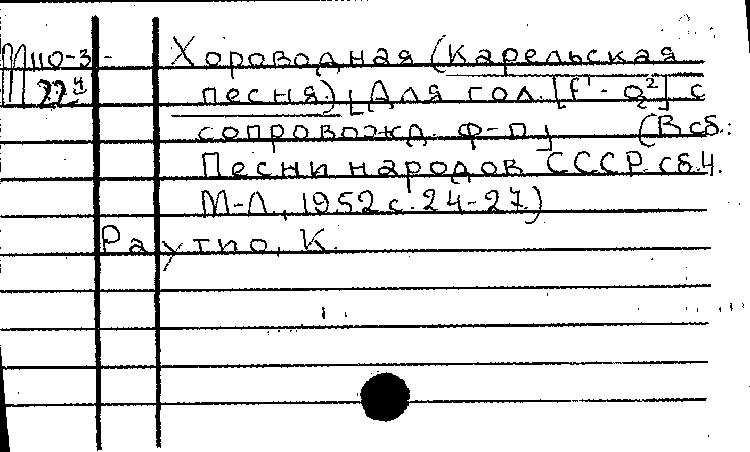 М110-3- Хороводная (Карельская
22⁴ песня) [Для гол. [f¹-g²] с
сопровожд. ф-п] (В сб.:
Песни народов СССР. сб.4.
М-Л., 1952 с. 24-27)
Раутио, К.